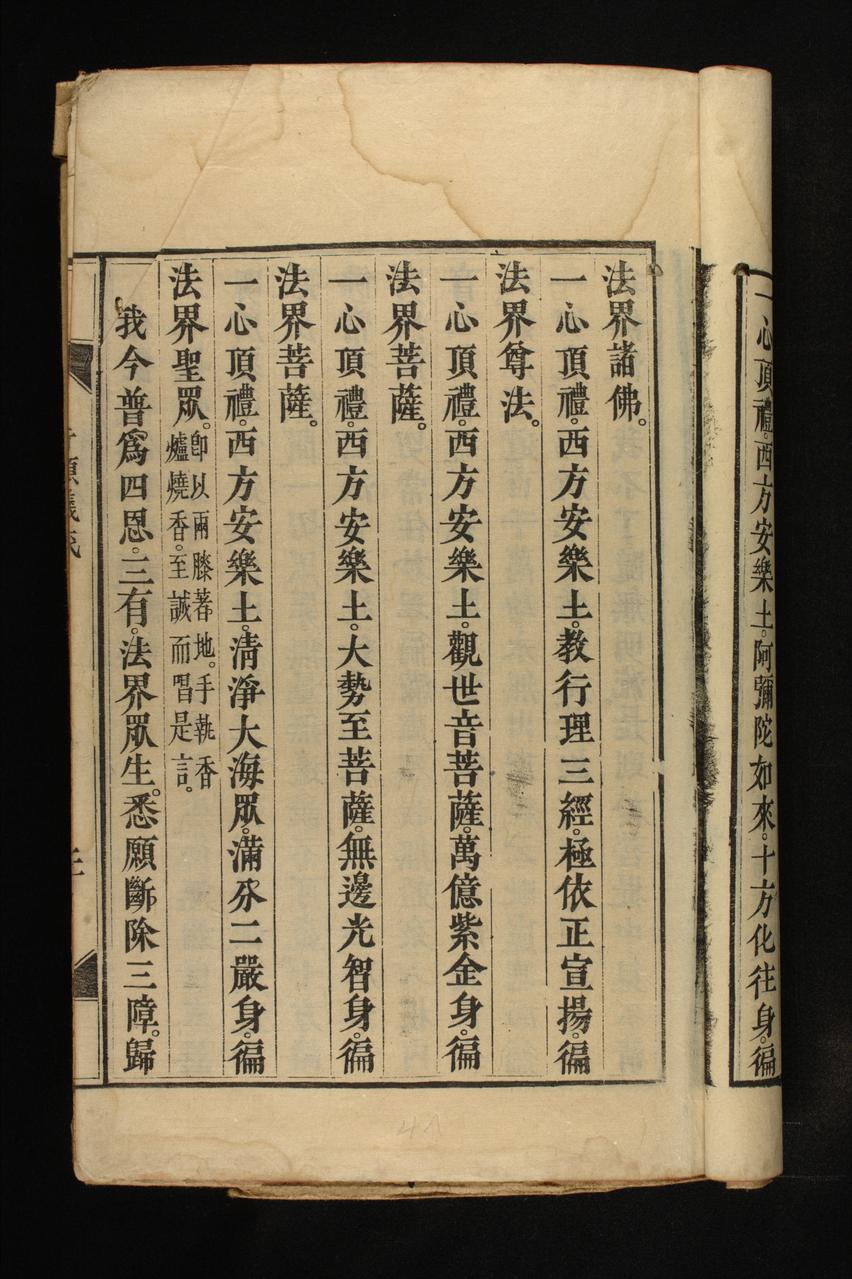 一心頂禮。西方安樂土。阿彌陀如來。十方化往身。徧
法界諸佛。
一心頂禮。西方安樂土。教行理三經。極依正宣揚。徧
法界尊法。
一心頂禮。西方安樂土。觀世音菩薩。萬億紫金身。徧
法界菩薩。
一心頂禮。西方安樂土。大勢至菩薩。無邊光智身。徧
法界菩薩。
一心頂禮。西方安樂土。清淨大海眾。滿分二嚴身。徧
法界聖眾。
即以兩膝著地。手執香
爐燒香。至誠而唱是言。
我今普爲四恩。三有。法界眾生。悉願斷除三障。歸